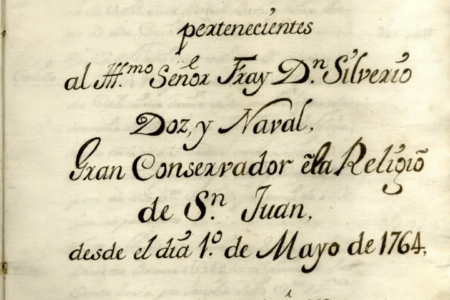 pertenecientes
al Ill.mo Señor Fray D.n Silverio
Doz, y Naval,
Gran Conservador ẽla Religiõ
de S.n Juan,
desde el dia 1.º de Mayo de 1764,